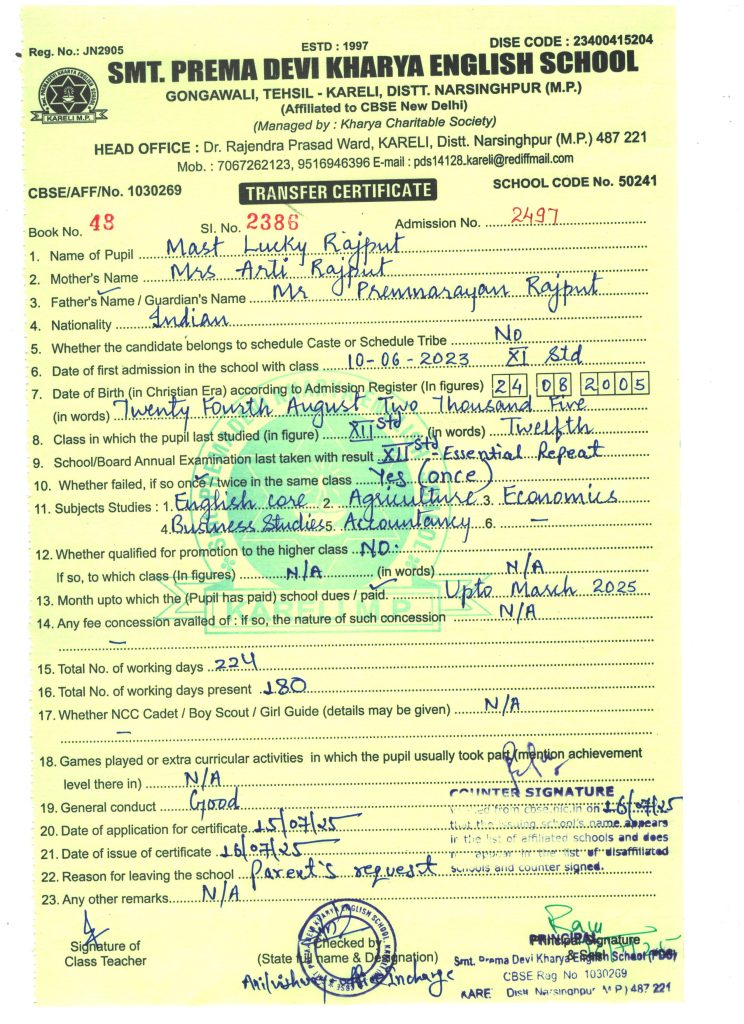 Reg. No.: JN2905 ESTD : 1997 DISE CODE : 23400415204
SMT. PREMA DEVI KHARYA ENGLISH SCHOOL
GONGAWALI, TEHSIL - KARELI, DISTT. NARSINGHPUR (M.P.)
(Affiliated to CBSE New Delhi)
(Managed by : Kharya Charitable Society)
KARELI M.P.
HEAD OFFICE : Dr. Rajendra Prasad Ward, KARELI, Distt. Narsinghpur (M.P.) 487 221
Mob. : 7067262123, 9516946396 E-mail : pds14128.kareli@rediffmail.com
CBSE/AFF/No. 1030269 TRANSFER CERTIFICATE SCHOOL CODE No. 50241
Book No. 48 Sl. No. 2386 Admission No. 2497
1. Name of Pupil Mast Lucky Rajput
2. Mother's Name Mrs Arti Rajput
3. Father's Name / Guardian's Name Mr Premnarayan Rajput
4. Nationality Indian
5. Whether the candidate belongs to schedule Caste or Schedule Tribe No
6. Date of first admission in the school with class 10-06-2023 XI Std
7. Date of Birth (in Christian Era) according to Admission Register (In figures) 24 08 2005
(in words) Twenty Fourth August Two Thousand Five
8. Class in which the pupil last studied (in figure) XII Std (in words) Twelfth
9. School/Board Annual Examination last taken with result XII Std - Essential Repeat
10. Whether failed, if so once / twice in the same class Yes (once)
11. Subjects Studies : 1. English core 2. Agriculture 3. Economics
4. Business Studies 5. Accountancy 6. —
12. Whether qualified for promotion to the higher class NO.
If so, to which class (In figures) N/A (in words) N/A
13. Month upto which the (Pupil has paid) school dues / paid. Upto March 2025
KARELI M.P.
14. Any fee concession availed of : if so, the nature of such concession N/A
—
15. Total No. of working days 224
16. Total No. of working days present 180
17. Whether NCC Cadet / Boy Scout / Girl Guide (details may be given) N/A
—
18. Games played or extra curricular activities in which the pupil usually took part (mention achievement
level there in) N/A
COUNTER SIGNATURE
19. General conduct Good
from cbse.nic.in on 16/07/25
20. Date of application for certificate 15/07/25
that the issuing school's name appears
in the list of affiliated schools and does
21. Date of issue of certificate 16/07/25
appear in the list of disaffiliated
22. Reason for leaving the school Parent's request
schools and counter signed.
23. Any other remarks. N/A
Signature of
Class Teacher
Checked by
(State full name & Designation)
Office Incharge
Principal Signature
& Seal
PRINCIPAL
Smt. Prema Devi Kharya English School (PDG)
CBSE Reg No 1030269
KARE Distt Narsinghpur M P) 487 221